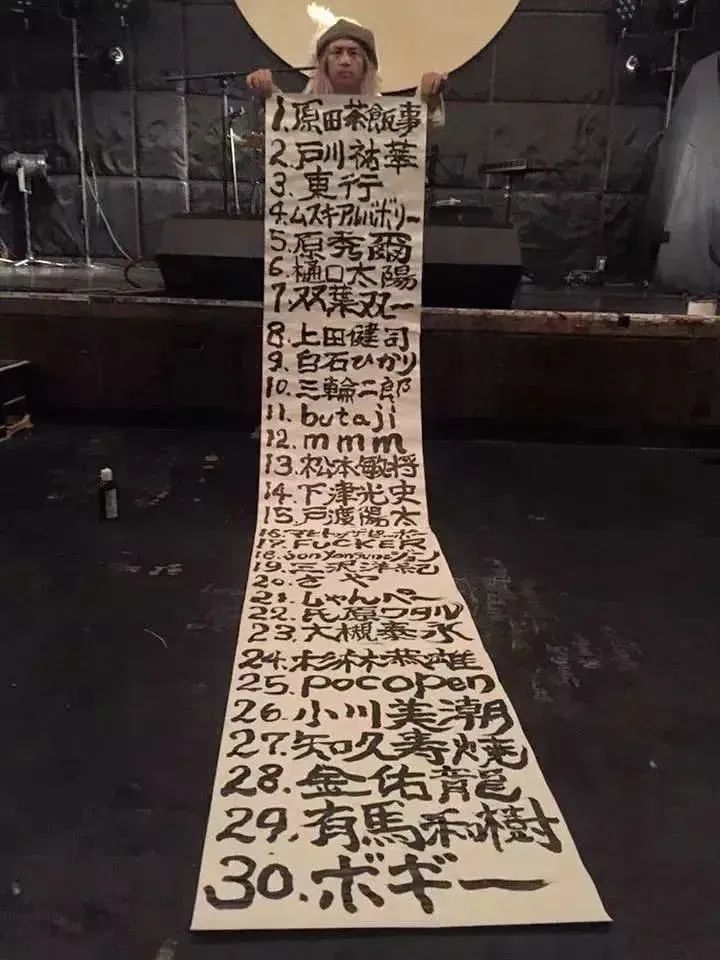 1.原田茶飯事
2.戸川祐華
3.東行
4.ムスキアルバボリー
5.原秀爾
6.樋口太陽
7.双葉双一
8.上田健司
9.白石ひかり
10.三輪二郎
11.butaji
12.mmm
13.松本敏将
14.下津光史
15.戸渡陽太
16.
17.FUCKER
18.
19.三沢洋紀
20.さや
21.しゃんぺー
22.氏原ワタル
23.大槻泰永
24.杉林恭雄
25.pocopen
26.小川美潮
27.知久寿焼
28.金佑龍
29.有馬和樹
30.ボギー